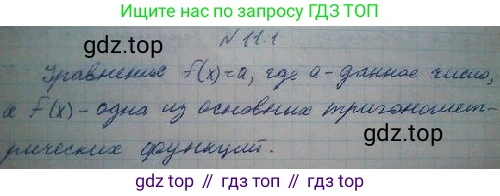 Ищите нас по запросу ГДЗ ТОП
gdz.top
N 11.1
gdz.top
Уравнение f(x)=a, где a - данное число,
а f(x) - одна из основных тригономет-
рических функций.
gdz.top
gdz.top // гдз топ // gdz top